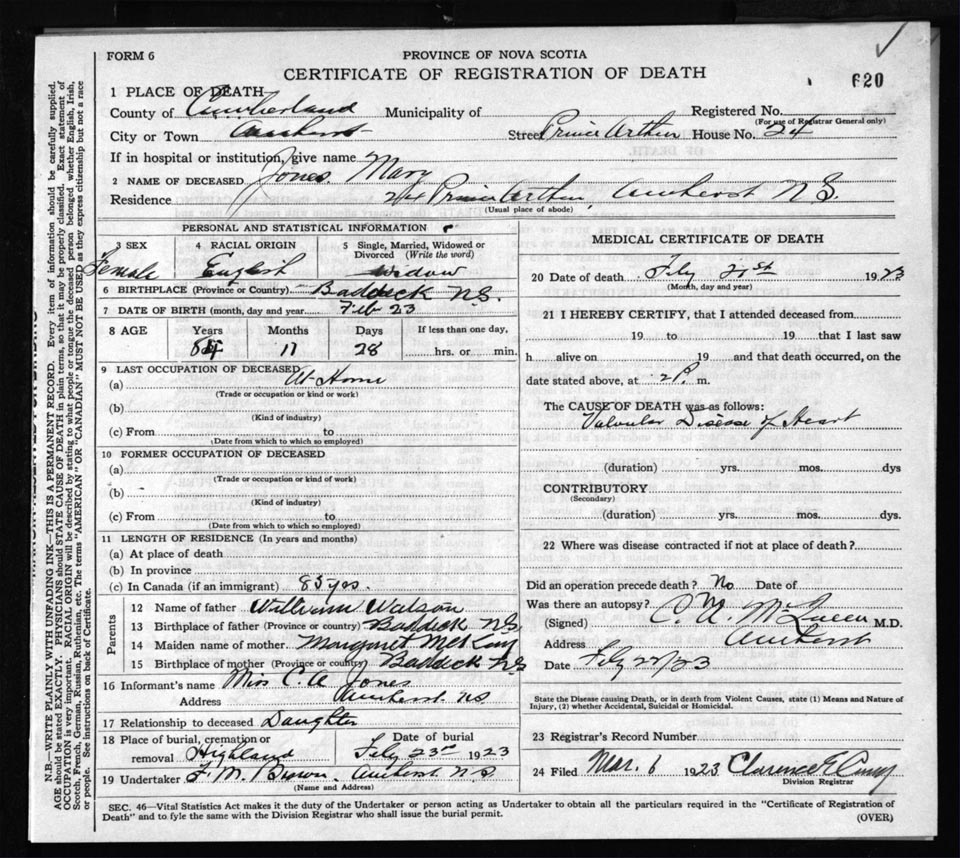 FORM 6
PROVINCE OF NOVA SCOTIA
CERTIFICATE OF REGISTRATION OF DEATH
620
1 PLACE OF DEATH
County of Cumberland Municipality of Registered No.
(For use of Registrar General only)
City or Town Amherst Street Prince Arthur House No. 24
If in hospital or institution, give name
2 NAME OF DECEASED Jones, Mary
Residence 24 Prince Arthur, Amherst N S.
(Usual place of abode)
PERSONAL AND STATISTICAL INFORMATION
3 SEX
Female
4 RACIAL ORIGIN
English
5 Single, Married, Widowed or
Divorced (Write the word)
Widow
6 BIRTHPLACE (Province or Country) Baddeck N.S.
7 DATE OF BIRTH (month, day and year) Feb 23
8 AGE Years Months Days If less than one day,
84 11 28 hrs. or min.
9 LAST OCCUPATION OF DECEASED
(a) At Home
(Trade or occupation or kind or work)
(b)
(Kind of industry)
(c) From to
(Date from which to which so employed)
10 FORMER OCCUPATION OF DECEASED
(a)
(Trade or occupation or kind of work)
(b)
(Kind of industry)
(c) From to
(Date from which to which so employed)
11 LENGTH OF RESIDENCE (In years and months)
(a) At place of death
(b) In province
(c) In Canada (if an immigrant) 85 yrs.
Parents
12 Name of father William Watson
13 Birthplace of father (Province or country) Baddeck N S.
14 Maiden name of mother Margaret McKay
15 Birthplace of mother (Province or country) Baddeck N S
16 Informant's name Miss C. A Jones
Address Amherst NS
17 Relationship to deceased Daughter
18 Place of burial, cremation or Date of burial
removal Highland Feby 23rd 1923
19 Undertaker F. M. Brown. Amherst N S
(Name and Address)
MEDICAL CERTIFICATE OF DEATH
20 Date of death Feby 21st 1923
(Month, day and year)
21 I HEREBY CERTIFY, that I attended deceased from
19 to 19 that I last saw
h alive on 19 and that death occurred, on the
date stated above, at 2 P. m.
The CAUSE OF DEATH was as follows:
Valvular Disease of Heart
(duration) yrs. mos. dys
CONTRIBUTORY
(Secondary)
(duration) yrs. mos. dys.
22 Where was disease contracted if not at place of death?
Did an operation precede death? No Date of
Was there an autopsy?
(Signed) C. A. McQueen M.D.
Address Amherst
Date Feby 22/23
State the Disease causing Death, or in death from Violent Causes, state (1) Means and Nature of
Injury, (2) whether Accidental, Suicidal or Homicidal.
23 Registrar's Record Number
24 Filed Mar. 6 1923 Clarence E
Division Registrar
SEC. 46—Vital Statistics Act makes it the duty of the Undertaker or person acting as Undertaker to obtain all the particulars required in the "Certificate of Registration of
Death" and to fyle the same with the Division Registrar who shall issue the burial permit.
(OVER)
N.B.—WRITE PLAINLY WITH UNFADING INK—THIS IS A PERMANENT RECORD. Every item of information should be carefully supplied.
AGE should be stated EXACTLY. PHYSICIANS should STATE CAUSE OF DEATH in plain terms, so that it may be properly classified. Exact statement of
OCCUPATION is very important. RACIAL ORIGIN will be described by stating to what people or tongue the deceased person belonged whether English, Irish,
Scotch, French, German, Russian, Ruthenian, etc. The terms "AMERICAN" OR "CANADIAN" MUST NOT BE USED as they express citizenship but not a race
or people. See instructions on back of Certificate.